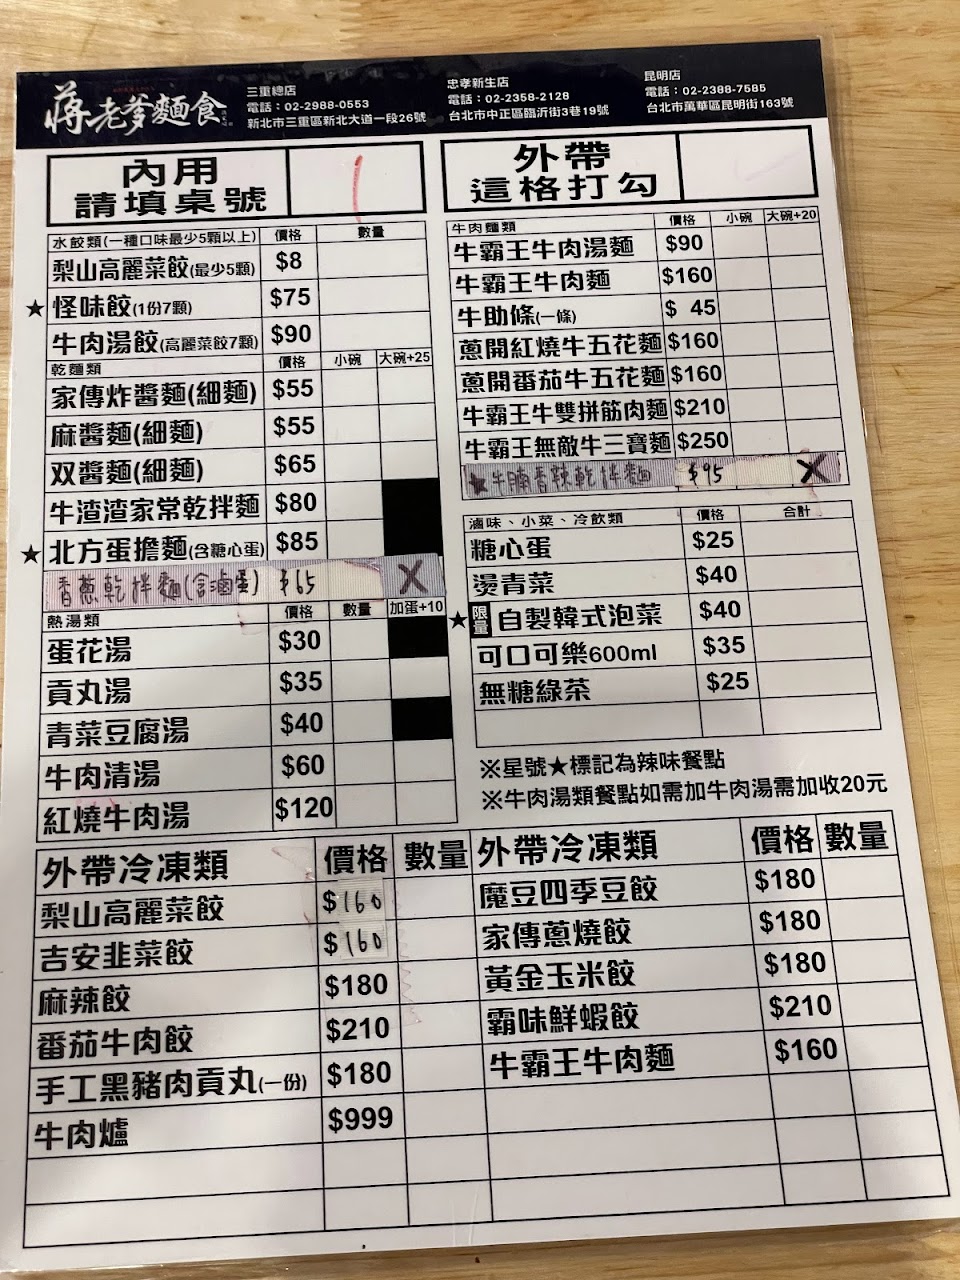 蔣老爹麵食
三重總店
電話：02-2988-0553
新北市三重區新北大道一段26號
忠孝新生店
電話：02-2358-2128
台北市中正區臨沂街3巷19號
昆明店
電話：02-2388-7585
台北市萬華區昆明街163號
內用
請填桌號
水餃類(一種口味最少5顆以上) 價格 數量
梨山高麗菜餃(最少5顆) $8
★ 怪味餃(1份7顆) $75
牛肉湯餃(高麗菜餃7顆) $90
乾麵類 價格 小碗 大碗+25
家傳炸醬麵(細麵) $55
麻醬麵(細麵) $55
双醬麵(細麵) $65
牛渣渣家常乾拌麵 $80
★ 北方蛋擔麵(含糖心蛋) $85
香蔥乾拌麵(含滷蛋) $65 X
熱湯類 價格 數量 加蛋+10
蛋花湯 $30
貢丸湯 $35
青菜豆腐湯 $40
牛肉清湯 $60
紅燒牛肉湯 $120
外帶
這格打勾
牛肉麵類 價格 小碗 大碗+20
牛霸王牛肉湯麵 $90
牛霸王牛肉麵 $160
牛助條(一條) $ 45
蔥開紅燒牛五花麵 $160
蔥開番茄牛五花麵 $160
牛霸王牛雙拼筋肉麵 $210
牛霸王無敵牛三寶麵 $250
★牛腩香辣乾拌麵 $95 X
滷味、小菜、冷飲類 價格 合計
糖心蛋 $25
燙青菜 $40
★ 限量 自製韓式泡菜 $40
可口可樂600ml $35
無糖綠茶 $25
※星號★標記為辣味餐點
※牛肉湯類餐點如需加牛肉湯需加收20元
外帶冷凍類 價格 數量
梨山高麗菜餃 $160
吉安韭菜餃 $160
麻辣餃 $180
番茄牛肉餃 $210
手工黑豬肉貢丸(一份) $180
牛肉爐 $999
外帶冷凍類 價格 數量
魔豆四季豆餃 $180
家傳蔥燒餃 $180
黃金玉米餃 $180
霸味鮮蝦餃 $210
牛霸王牛肉麵 $160